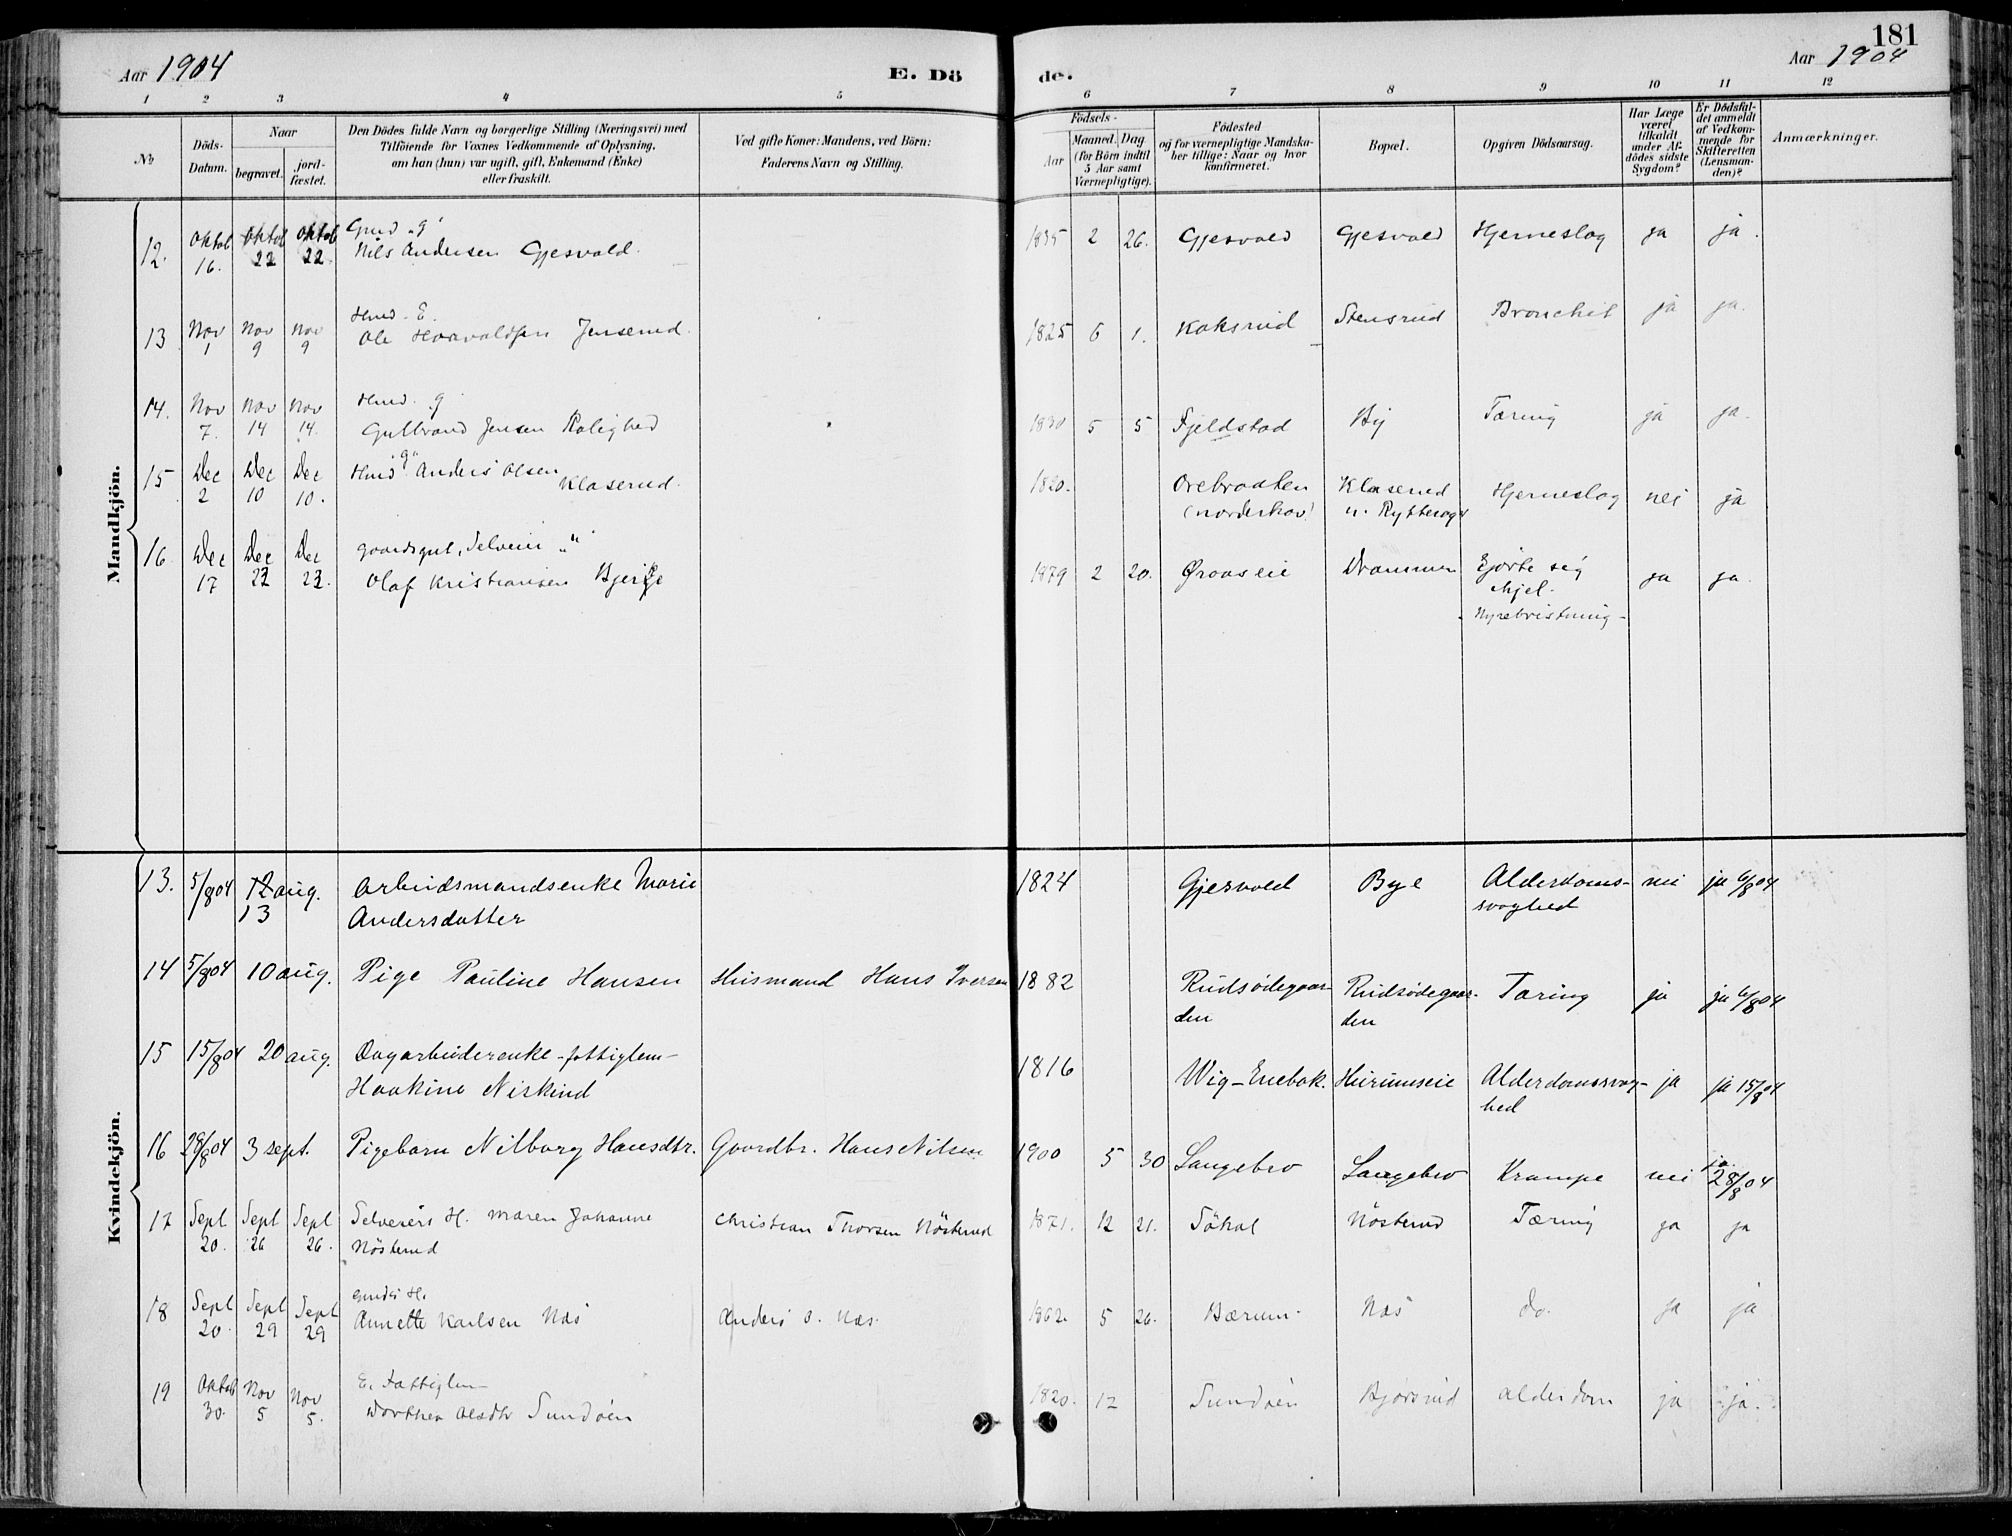 181
Aar 1904
E. Döde.
Aar 1904
1 2 3 4 5 6 7 8 9 10 11 12
No
Döds-Datum.
Naar
begravet.
jord-fæstet.
Den Dödes fulde Navn og borgerlige Stilling (Næringsvei) med
Tilföiende for Voxnes Vedkommende af Oplysning,
om han (hun) var ugift, gift, Enkemand (Enke)
eller fraskilt.
Ved gifte Koner: Mandens, ved Börn:
Faderens Navn og Stilling.
Födsels-
Aar
Maaned. Dag
(for Börn indtil
5 Aar samt
Værnepligtige).
Födested
og for værnepligtige Mandska-
ber tillige: Naar og hvor
konfirmeret.
Bopæl.
Opgiven Dödsaarsag.
Har Læge
været
tilkaldt
under Af-
dödes sidste
Sygdom?
Er Dödsfal-
det anmeldt
af Vedkom-
mende for
Skifteretten
(Lensman-
den)?
Anmærkninger.
Mandkjön.
12. Oktob 16. Oktob 22 Oktob 22. Gmd "g"
Nils Andersen Gjesvold. 1835 2 26. Gjesvold Gjesvold Hjerneslag ja ja.
13 Nov 1 Nov 9 Nov 9 Hmd. E.
Ole Haavaldsen Jenserud. 1825 6 1. Koksrud Stensrud Bronchit ja ja.
14. Nov 7. Nov 14 Nov 14. Hmd. g
Gulbrand Jensen Rolighed 1830 5 5 Fjeldstad By Tæring ja ja.
15 Dec 2 Dec 10 Dec 10. Hmd "g" Anders Olsen Klaserud. 1820. Orebraaten
(Norderhov) Klaserud
u. Rytterager Hjerneslag nei ja
16. Dec 17 Dec 22 Dec 22. Gaardsgut, Selveier "u"
Olaf Kristiansen Bjerke 1879 2 20. Øraaseie Drammen Gjorde sig
ihjel.
Nyrebristning - ja ja.
Kvindekjön.
13. 5/8 04 12 aug.
13 Arbeidsmandsenke Marie
Andersdatter 1824 Gjesvold Bye Alderdoms-
svaghed nei ja 6/8 04
14 5/8 04 10 aug. Pige Pauline Hansen Husmand Hans Iversen 1882 Rudsødegaar-
den Rudsødegaar-
den Tæring ja ja 6/8 04
15 15/8 04 20 aug. Dagarbeiderenke - fattiglem -
Haakine Niskind 1816 Wig - Enebak. Heirumseie Alderdomssvag-
hed ja ja 15/8 04
16 28/8 04 3 sept. Pigebarn Nilborg Hansdtr. Gaardbr. Hans Nilsen 1900 5 30 Langebro Langebro Krampe nei ja 28/8 04
17 Sept 20. Sept 26 Sept 26. Selveiers H. Maren Johanne
Nösterud Christian Thorsen Nösterud 1871. 12 21. Søhol Nösterud Tæring ja ja
18 Sept 20. Sept 29 Sept 29 Gmds H.
Annette Karlsen Næs Anders O. Næs. 1862. 5 26. Bærum. Næs do. ja ja
19 Oktob 30. Nov 5 Nov 5. E. Fattiglem
Dorthea Olsdtr Sundøen 1820. 12 Sundøen Bjørnrud Alderdom ja ja.